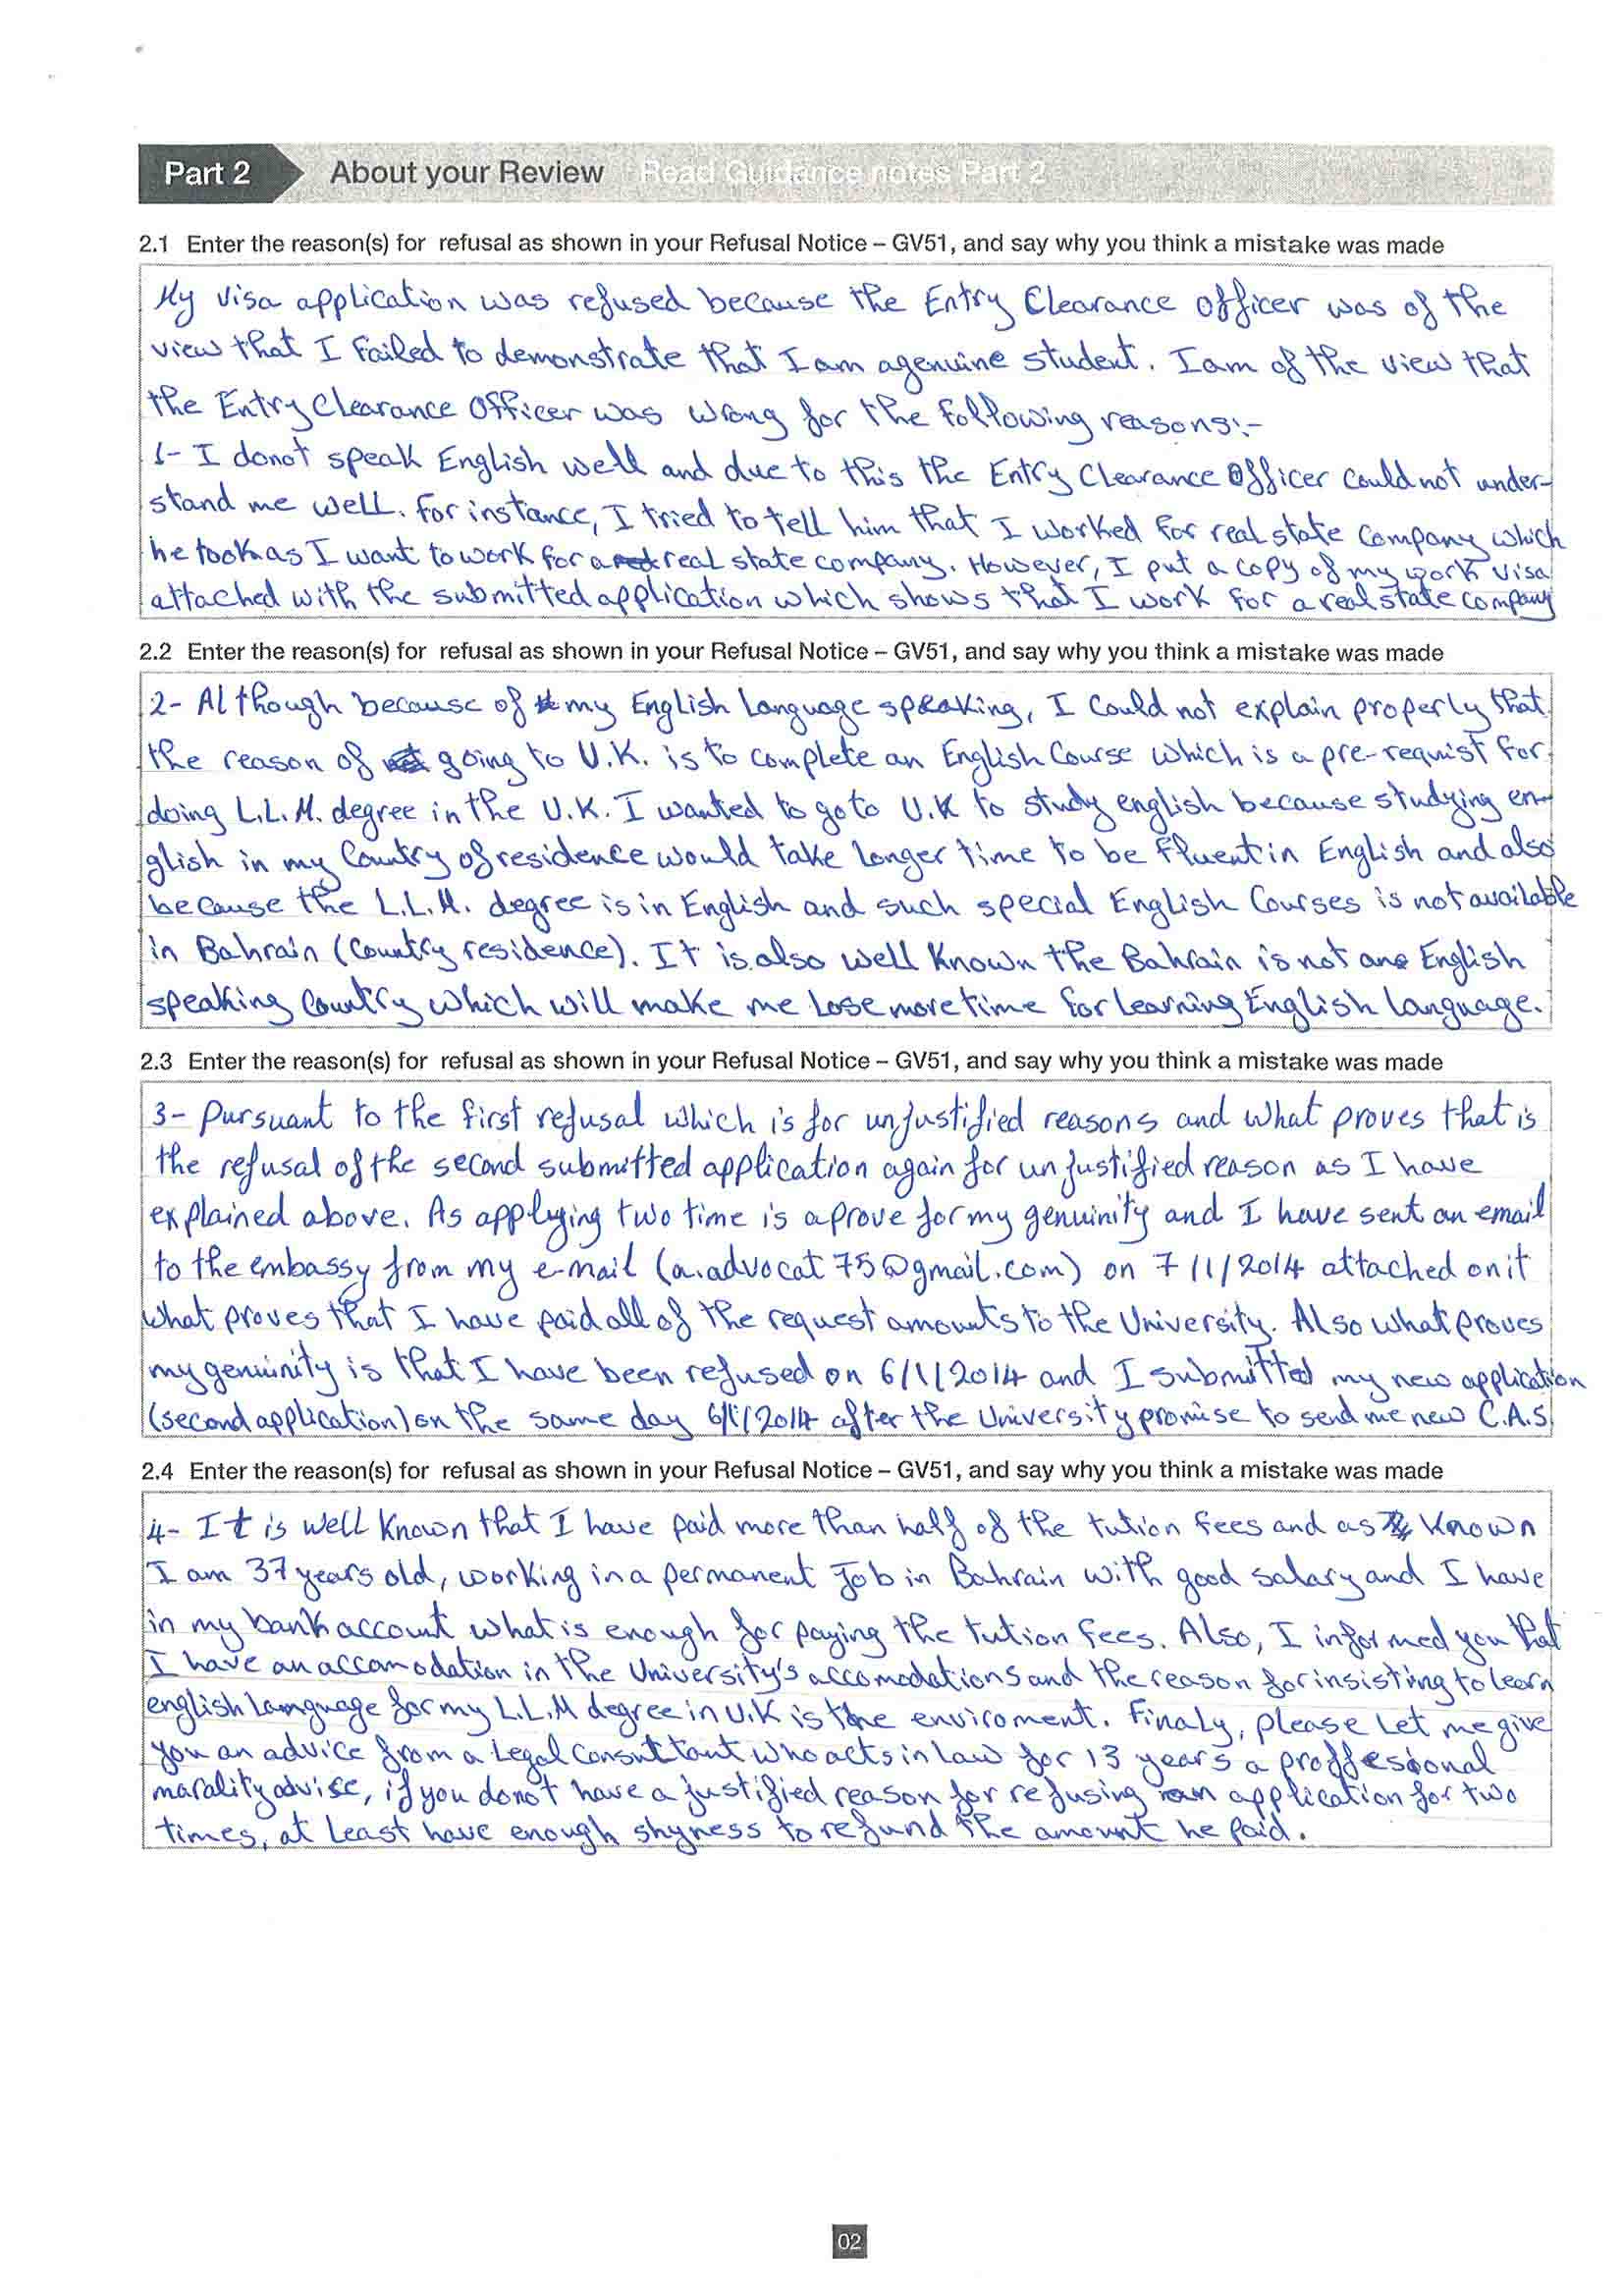 Part 2 About your Review Read Guidance notes Part 2
2.1 Enter the reason(s) for refusal as shown in your Refusal Notice – GV51, and say why you think a mistake was made
My visa application was refused because the Entry Clearance officer was of the
view that I Failed to demonstrate that I am agenuine student. I am of the view that
the Entry Clearance Officer was wrong for the following reasons:-
1- I donot speak English well and due to this the Entry Clearance Officer could not under-
stand me well. for instance, I tried to tell him that I worked for real state company which
he took as I want to work for a real state company. However, I put a copy of my work visa
attached with the submitted application which shows that I work for a real state company
2.2 Enter the reason(s) for refusal as shown in your Refusal Notice – GV51, and say why you think a mistake was made
2- Although because of my English Language speaking, I could not explain properly that
the reason of going to U.K. is to complete an English Course which is a pre-requist for
doing L.L.M. degree in the U.K. I wanted to go to U.K to study english because studying en-
glish in my Country of residence would take longer time to be fluent in English and also
because the L.L.M. degree is in English and such special English Courses is not available
in Bahrain (Country residence). It is also well known the Bahrain is not an English
speaking Country which will make me lose more time for learning English language.
2.3 Enter the reason(s) for refusal as shown in your Refusal Notice – GV51, and say why you think a mistake was made
3- Pursuant to the first refusal which is for unjustified reasons and what proves that is
the refusal of the second submitted application again for unjustified reason as I have
explained above. As applying two time is a prove for my genuinity and I have sent an email
to the embassy from my e-mail (a.advocat75@gmail.com) on 7/1/2014 attached on it
what proves that I have paid all of the request amounts to the University. Also what proves
my genuinity is that I have been refused on 6/1/2014 and I submitted my new application
(second application) on the same day 6/1/2014 after the University promise to send me new C.A.S
2.4 Enter the reason(s) for refusal as shown in your Refusal Notice – GV51, and say why you think a mistake was made
4- It is well known that I have paid more than half of the tution fees and as known
I am 37 years old, working in a permanent job in Bahrain with good salary and I have
in my bank account what is enough for paying the tution fees. Also, I informed you that
I have an accamodation in the University's accomodations and the reason for insisting to learn
english language for my L.L.M degree in U.K is the enviroment. Finaly, please let me give
you an advice from a Legal Consultant who acts in law for 13 years a proffesional
marality advise, if you donot have a justified reason for refusing an application for two
times, at least have enough shyness to refund the amount he paid.
02